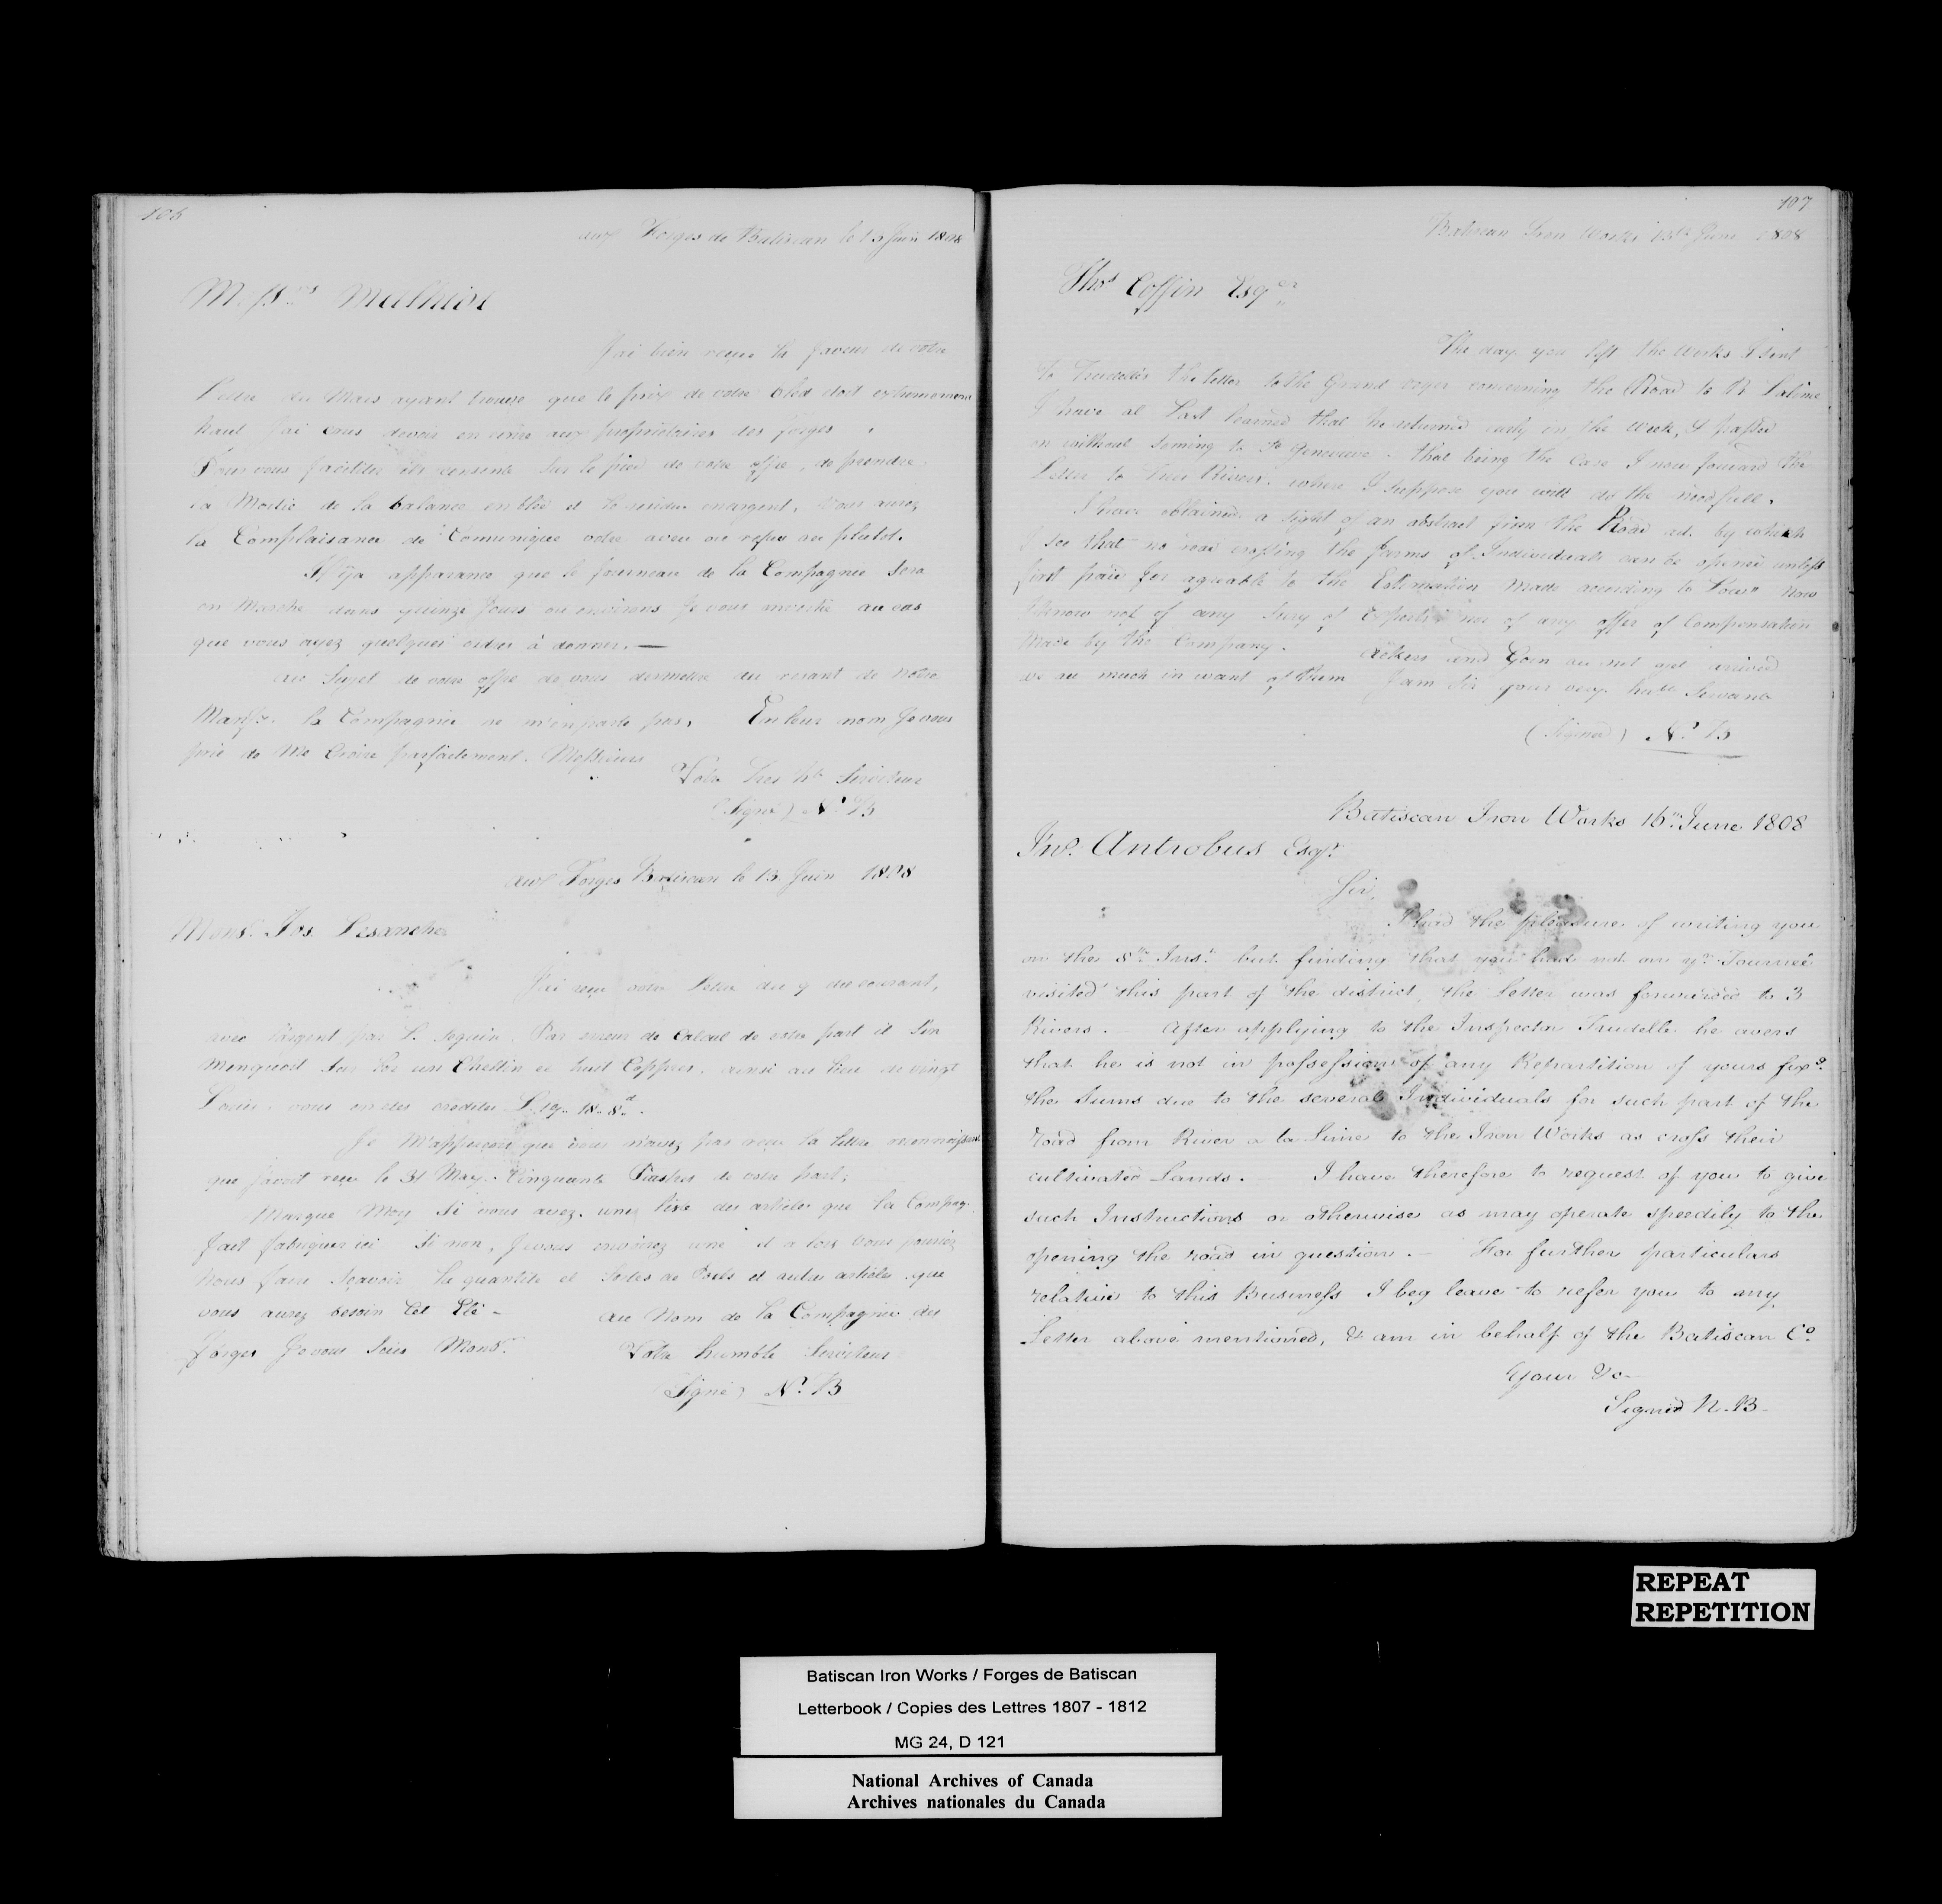 106
aux Forges de Batiscan le 13 Juin 1808
Messrs
J'ai bien reçue la faveur de votre
Lettre du Mars ayant trouvé que le prix de votre bled etoit extremement
haut J'ai crus devoir en ecrire aux proprietaires des forges.
Pour vous faciliter ils consente sur le pied de votre offre, de prendre
la Moitié de la balance en bled et le residu enargent, Vous aurez
la Complaisance de Comunique votre aveu ou refus au plutot.
Il y a apparance que le fourneau de la Compagnie sera
en Marche dans quinze Jours ou environs Je vous avertie au cas
que vous ayez quelques ordres à donner. —
au Sujet de votre offre de vous demettre du restant de notre
la Compagnie ne m'en parle pas, Enleur nom Je vous
prie de Me Croire parfaitement. Messieurs
Votre tres hble Serviteur
(Signé) N. B
aux Forges Batiscan le 13 Juin 1808
Monsr. Jos.
J'ai reçu votre Lettre du 9 du courant,
avec l'argent par L. Seguin. Par erreur de Calcul de votre part il s'en
Manquoit un Chellin et huit Coppres. ainsi au lieu de vingt
Louis. vous en etes crediter L 19. 18. 8d.
Je M'apperçois que vous n'avez pas reçu la lettre reconnoissant
que J'avoit reçu le 31 May. Cinquante Piastres de votre part;
Marque Moy Si vous avez. une liste des articles que la Compag:
fait fabriquer ici Si non, Je vous envoirez une et a lors vous pouriez
nous faire Sçavoir la quantité et Sortes de Poels et autres articles que
vous aurez besoin Cet Eté - au Nom de la Compagnie des
forges Je vous Suis Monsr. Votre humble Serviteur
(Signé) N. B
107
Batiscan Iron Works 13th June 1808
Thos Coffin Esqer
The day you left the Works I sent
To Trudelle's the letter to the Grand voyer concerning the Road to R Salime
I have at Last learned that he returned early in the Week, & passed
on without Coming to St Genevieve. that being the Case I now foward the
Letter to Three Rivers. where I suppose you will do the needfull.
I have obtained a sight of an abstract from the Road act. by which
I see that no road crossing the farms of Individuals can be opened unless
first paid for agreable to the Estimation Made according to Law. Now
I know not of any Jury of Experts nor of any offer of Compensation
Made by the Company. Ackers and Corn are not yet arrived
we are much in want of them I am Sir your very. hble Servant
(Signed) N. B
Batiscan Iron Works 16th June 1808
Jno. Antrobus Esqr.
Sir,
I had the pleasure of writing you
on the 8th Inst. but finding that you had not on yr. Tourneé
visited this part of the district, the Letter was forwarded to 3
Rivers. — After applying to the Inspector Trudelle he avers
that he is not in possession of any Repartition of yours fixg.
the Sums due to the several Individuals for such part of the
road from River a la Lime to the Iron Works as cross their
cultivated Lands. — I have therefore to request of you to give
such Instructions or otherwise as may operate speedily to the
opening the road in question. — For further particulars
relative to this Business I beg leave to refer you to my
Letter above mentioned, & am in behalf of the Batiscan Co
Your &c—
Signed N. B.
REPEAT
REPETITION
Batiscan Iron Works / Forges de Batiscan
Letterbook / Copies des Lettres 1807 - 1812
MG 24, D 121
National Archives of Canada
Archives nationales du Canada